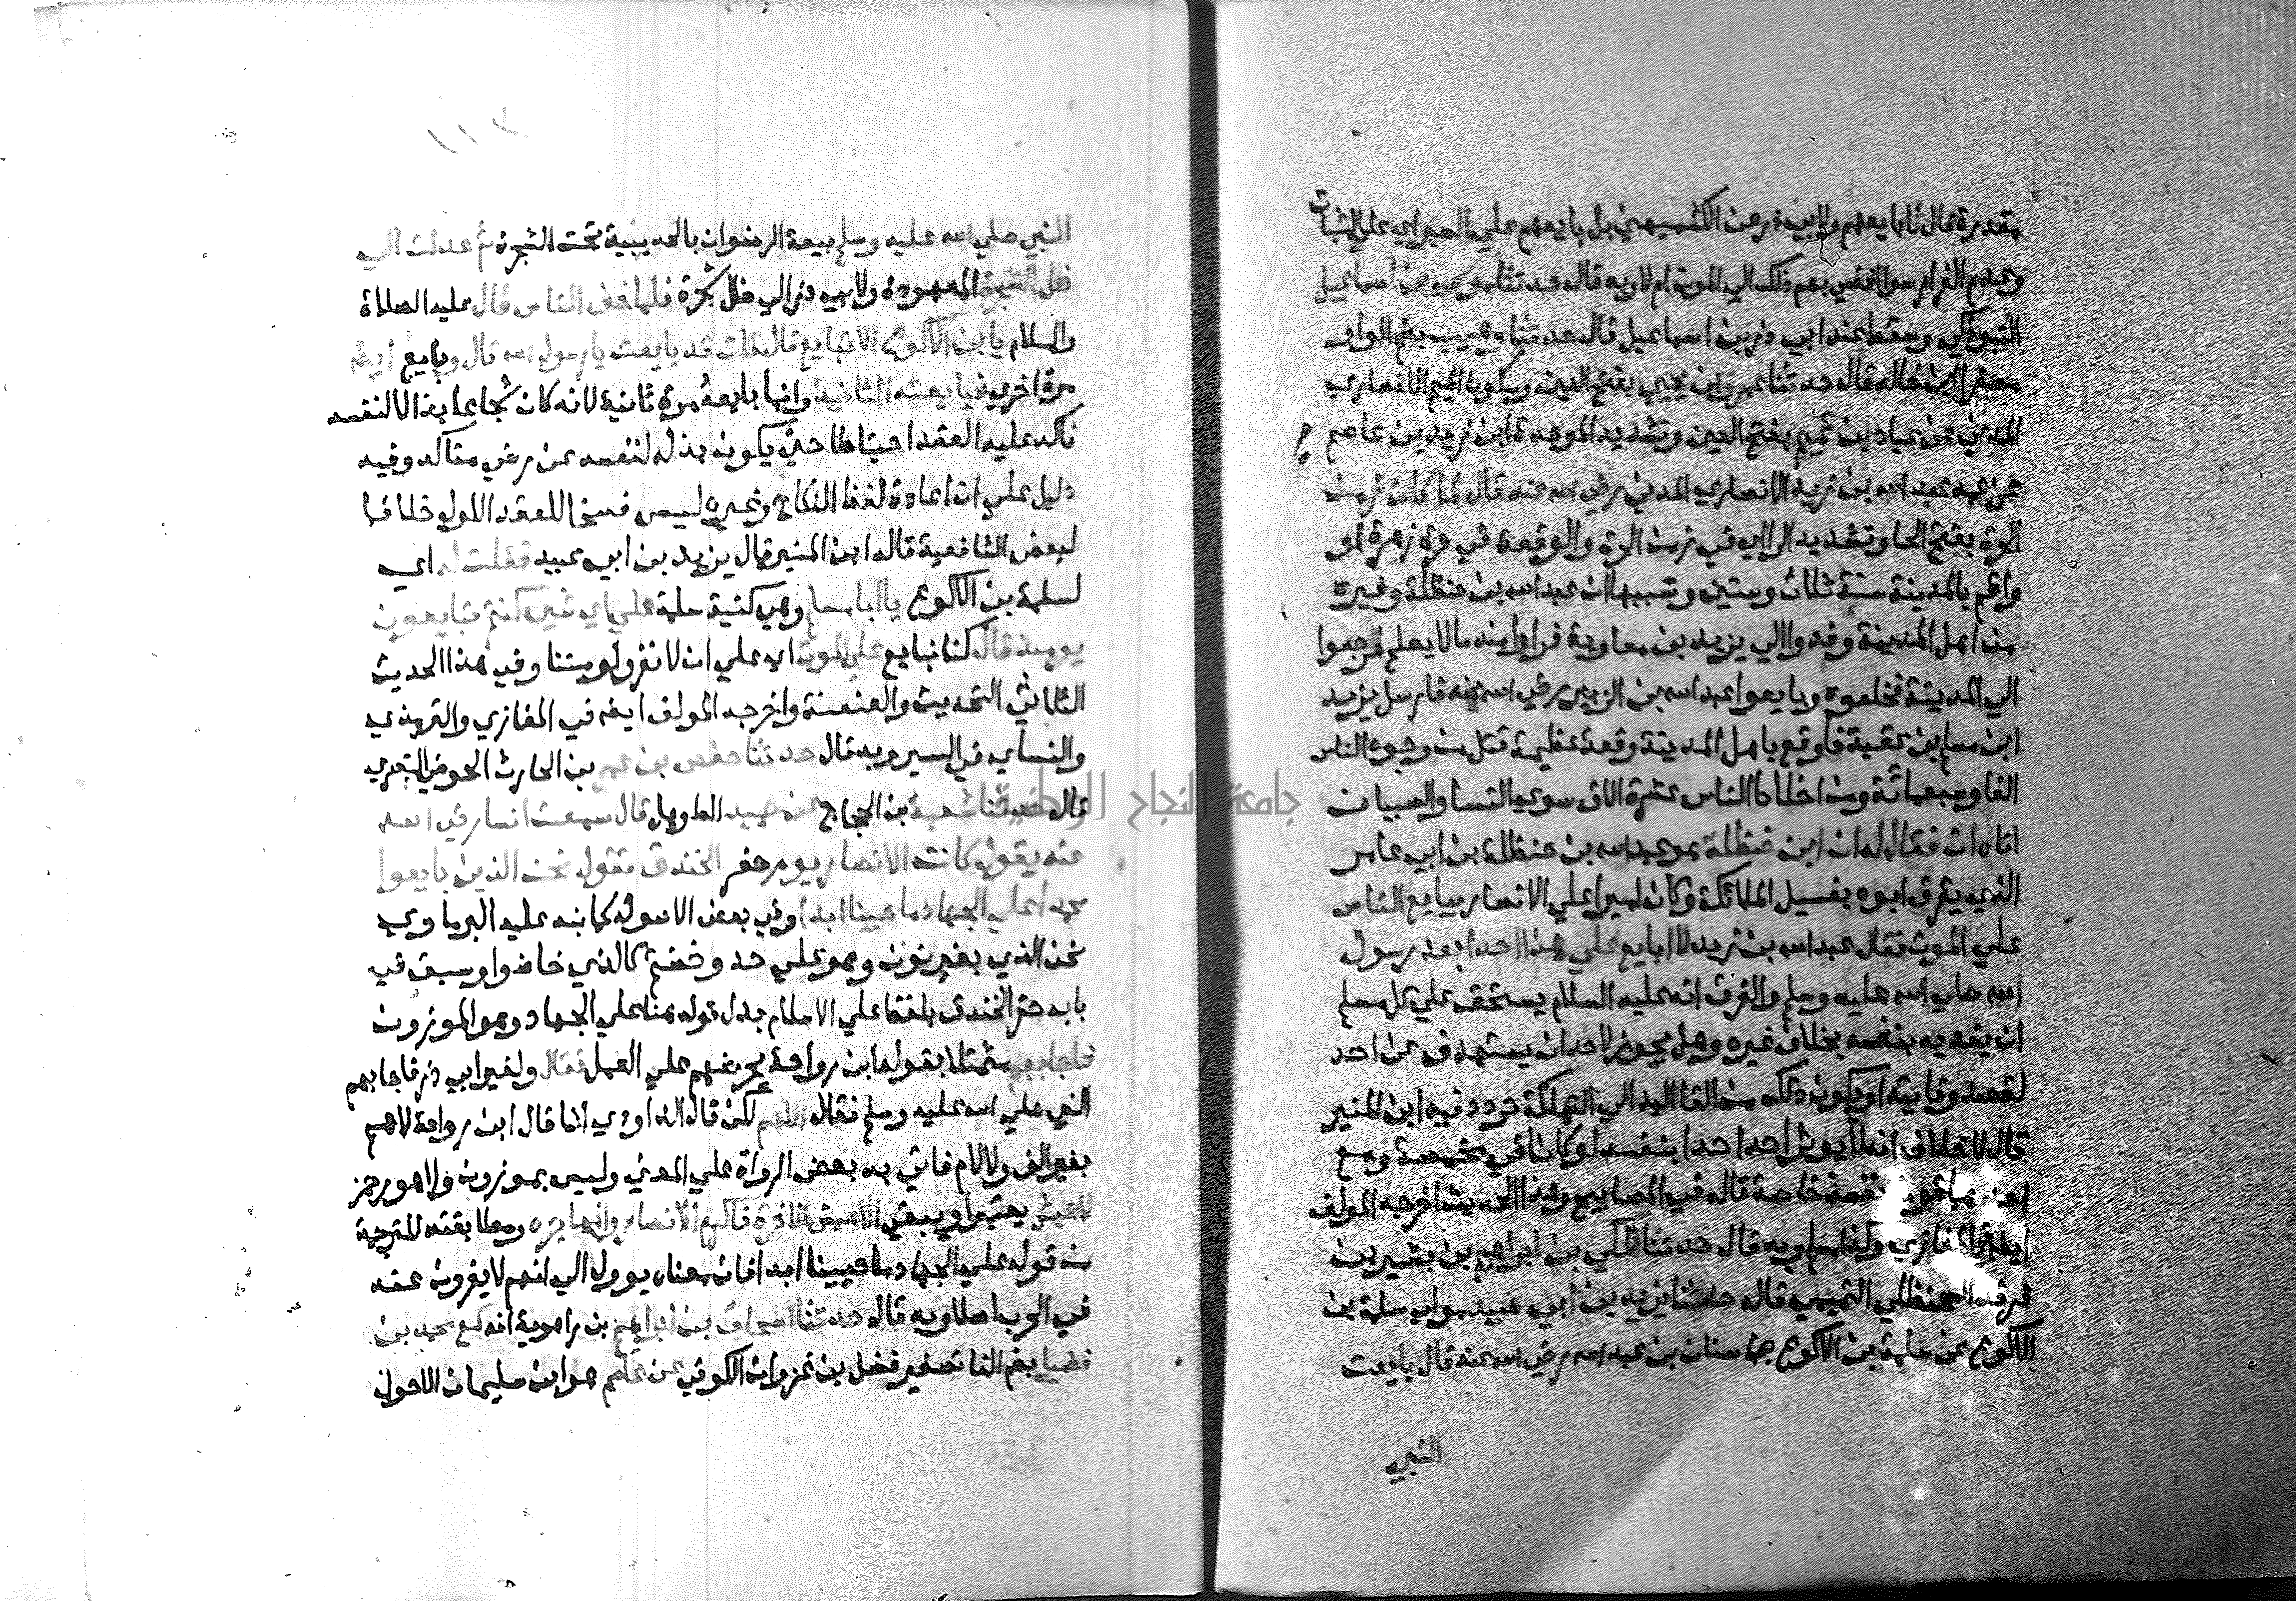 مقدرة قال لا بايعهم ولابي ذر عن الكشميهني بل بايعهم علي الصبر اي علي الثبات
وعدم الفرار سوا افضي بهم ذلك الي الموت ام لا وبه قال حدثنا موسي بن اسماعيل
التبوذكي وسقط عند ابي ذر بن اسماعيل قال حدثنا وهيب بضم الواو
مصغرا ابن خالد قال حدثنا عمرو بن يحيي بفتح العين وسكون الميم الانصاري
المدني عن عباد بن تميم بفتح العين وتشديد الموحدة ابن زيد بن عاصم
عن عمه عبد الله بن زيد الانصاري المدني رضي الله عنه قال لما كان زمن
الحرة بفتح الحا وتشديد الرا اي في زمن الحرة والوقعة في حرة زهرة او
واقم بالمدينة سنة ثلاث وستين وسببها ان عبد الله بن حنظلة وغيره
من اهل المدينة وفدوا الي يزيد بن معاوية فراوا منه ما لا يصلح فرجعوا
الي المدينة فخلعوه وبايعوا عبد الله بن الزبير رضي الله عنه فارسل يزيد
ابن مسلم بن عقبة فاوقع باهل المدينة وقعة عظيمة قتل من وجوه الناس
الفا وسبعمائة ومن اخلاط الناس عشرة الاف سوي النسا والصبيان
اتاه ات فقال له ان ابن حنظلة هو عبد الله بن حنظلة بن ابي عامر
الذي يعرف ابوه بغسيل الملائكة وكان اميرا علي الانصار يبايع الناس
علي الموت فقال عبد الله بن زيد لا ابايع علي هذا احدا بعد رسول
الله صلي الله عليه وسلم والفرق انه عليه السلام يستحق علي كل مسلم
ان يفديه بنفسه بخلاف غيره وهل يجوز لاحد ان يستهدف عن احد
لقصد وقايته او يكون ذلك من القا اليد الي التهلكة تردد فيه ابن المنير
قال لا خلاف انه لا يوثر احد احدا بنفسه لو كان في مخمصة ومع
نفسه خاصة قاله في المصابيح وهذا الحديث اخرجه المولف
ايضا في المغازي وكذا مسلم وبه قال حدثنا المكي بن ابراهيم بن بشير بن
فرقد الحنظلي التميمي قال حدثنا يزيد بن ابي عبيد مولي سلمة بن
الاكوع عن سلمة بن الاكوع سنان بن عبد الله رضي الله عنه قال بايعت
النبي
النبي صلي الله عليه وسلم بيعة الرضوان بالحديبية تحت الشجرة ثم عدلت الي
ظل الشجرة المعهودة ولابي ذر الي ظل شجرة فلما خف الناس قال عليه الصلاة
والسلام يا بن الاكوع الا تبايع قال قلت قد بايعت يا رسول الله قال وبايع ايضا
مرة اخري فبايعته الثانية وانما بايعه مرة ثانية لانه كان شجاعا بذالا لنفسه
فاكد عليه العقد احتياطا حتي يكون بذله لنفسه عن رضي متاكد وفيه
دليل علي ان اعادة لفظ النكاح وغيره ليس فسخا للعقد الاول خلافا
لبعض الشافعية قاله ابن المنير قال يزيد بن ابي عبيد فقلت له اي
لسلمة بن الاكوع يا ابا مسلم وهي كنية سلمة علي اي شي كنتم تبايعون
يومئذ قال كنا نبايع علي الموت اي علي ان لا نفر ولو متنا وفي هذا الحديث
الثلاثي التحديث والعنعنة واخرجه المولف ايضا في المغازي والترمذي
والنساي في السير وبه قال حدثنا حفص بن عمر بن الحارث الحوضي البصري
قال حدثنا شعبة بن الحجاج عن حميد الطويل قال سمعت انسا رضي الله
عنه يقول كانت الانصار يوم حفر الخندق تقول نحن الذين بايعوا
محمدا علي الجهاد ما حيينا ابدا وفي بعض الاصول كما نبه عليه البرماوي
نحن الذي بغير نون وهو علي حد وخضتم كالذي خاضوا وسبق في
باب حفر الخندق بلفظ علي الاسلام بدل قوله هنا علي الجهاد وهو الموزون
فاجابهم متمثلا بقول ابن رواحة يحرضهم علي العمل فقال ولغير ابي ذر فاجابهم
النبي صلي الله عليه وسلم فقال اللهم لكن قال الداودي انما قال ابن رواحة لاهم
بغير الف ولا لام فاتي به بعض الرواة علي المعني وليس بموزون ولا هو رجز
لا عيش يعتبر او يبقي الا عيش الاخرة فاكرم الانصار والمهاجره ومطابقته للترجمة
من قوله علي الجهاد ما حيينا ابدا فان معناه يوول الي انهم لا يفرون عنه
في الحرب اصلا وبه قال حدثنا اسحاق بن ابراهيم بن راهوية انه سمع محمد بن
فضيل بضم الفا تصغير فضل بن غزوان الكوفي عن عاصم هو ابن سليمان الاحول
جامعة النجاح الوطنية